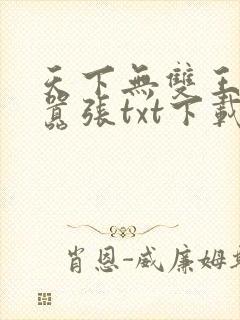 天下無雙王
囂張txt下載
肖恩-威廉姆斯